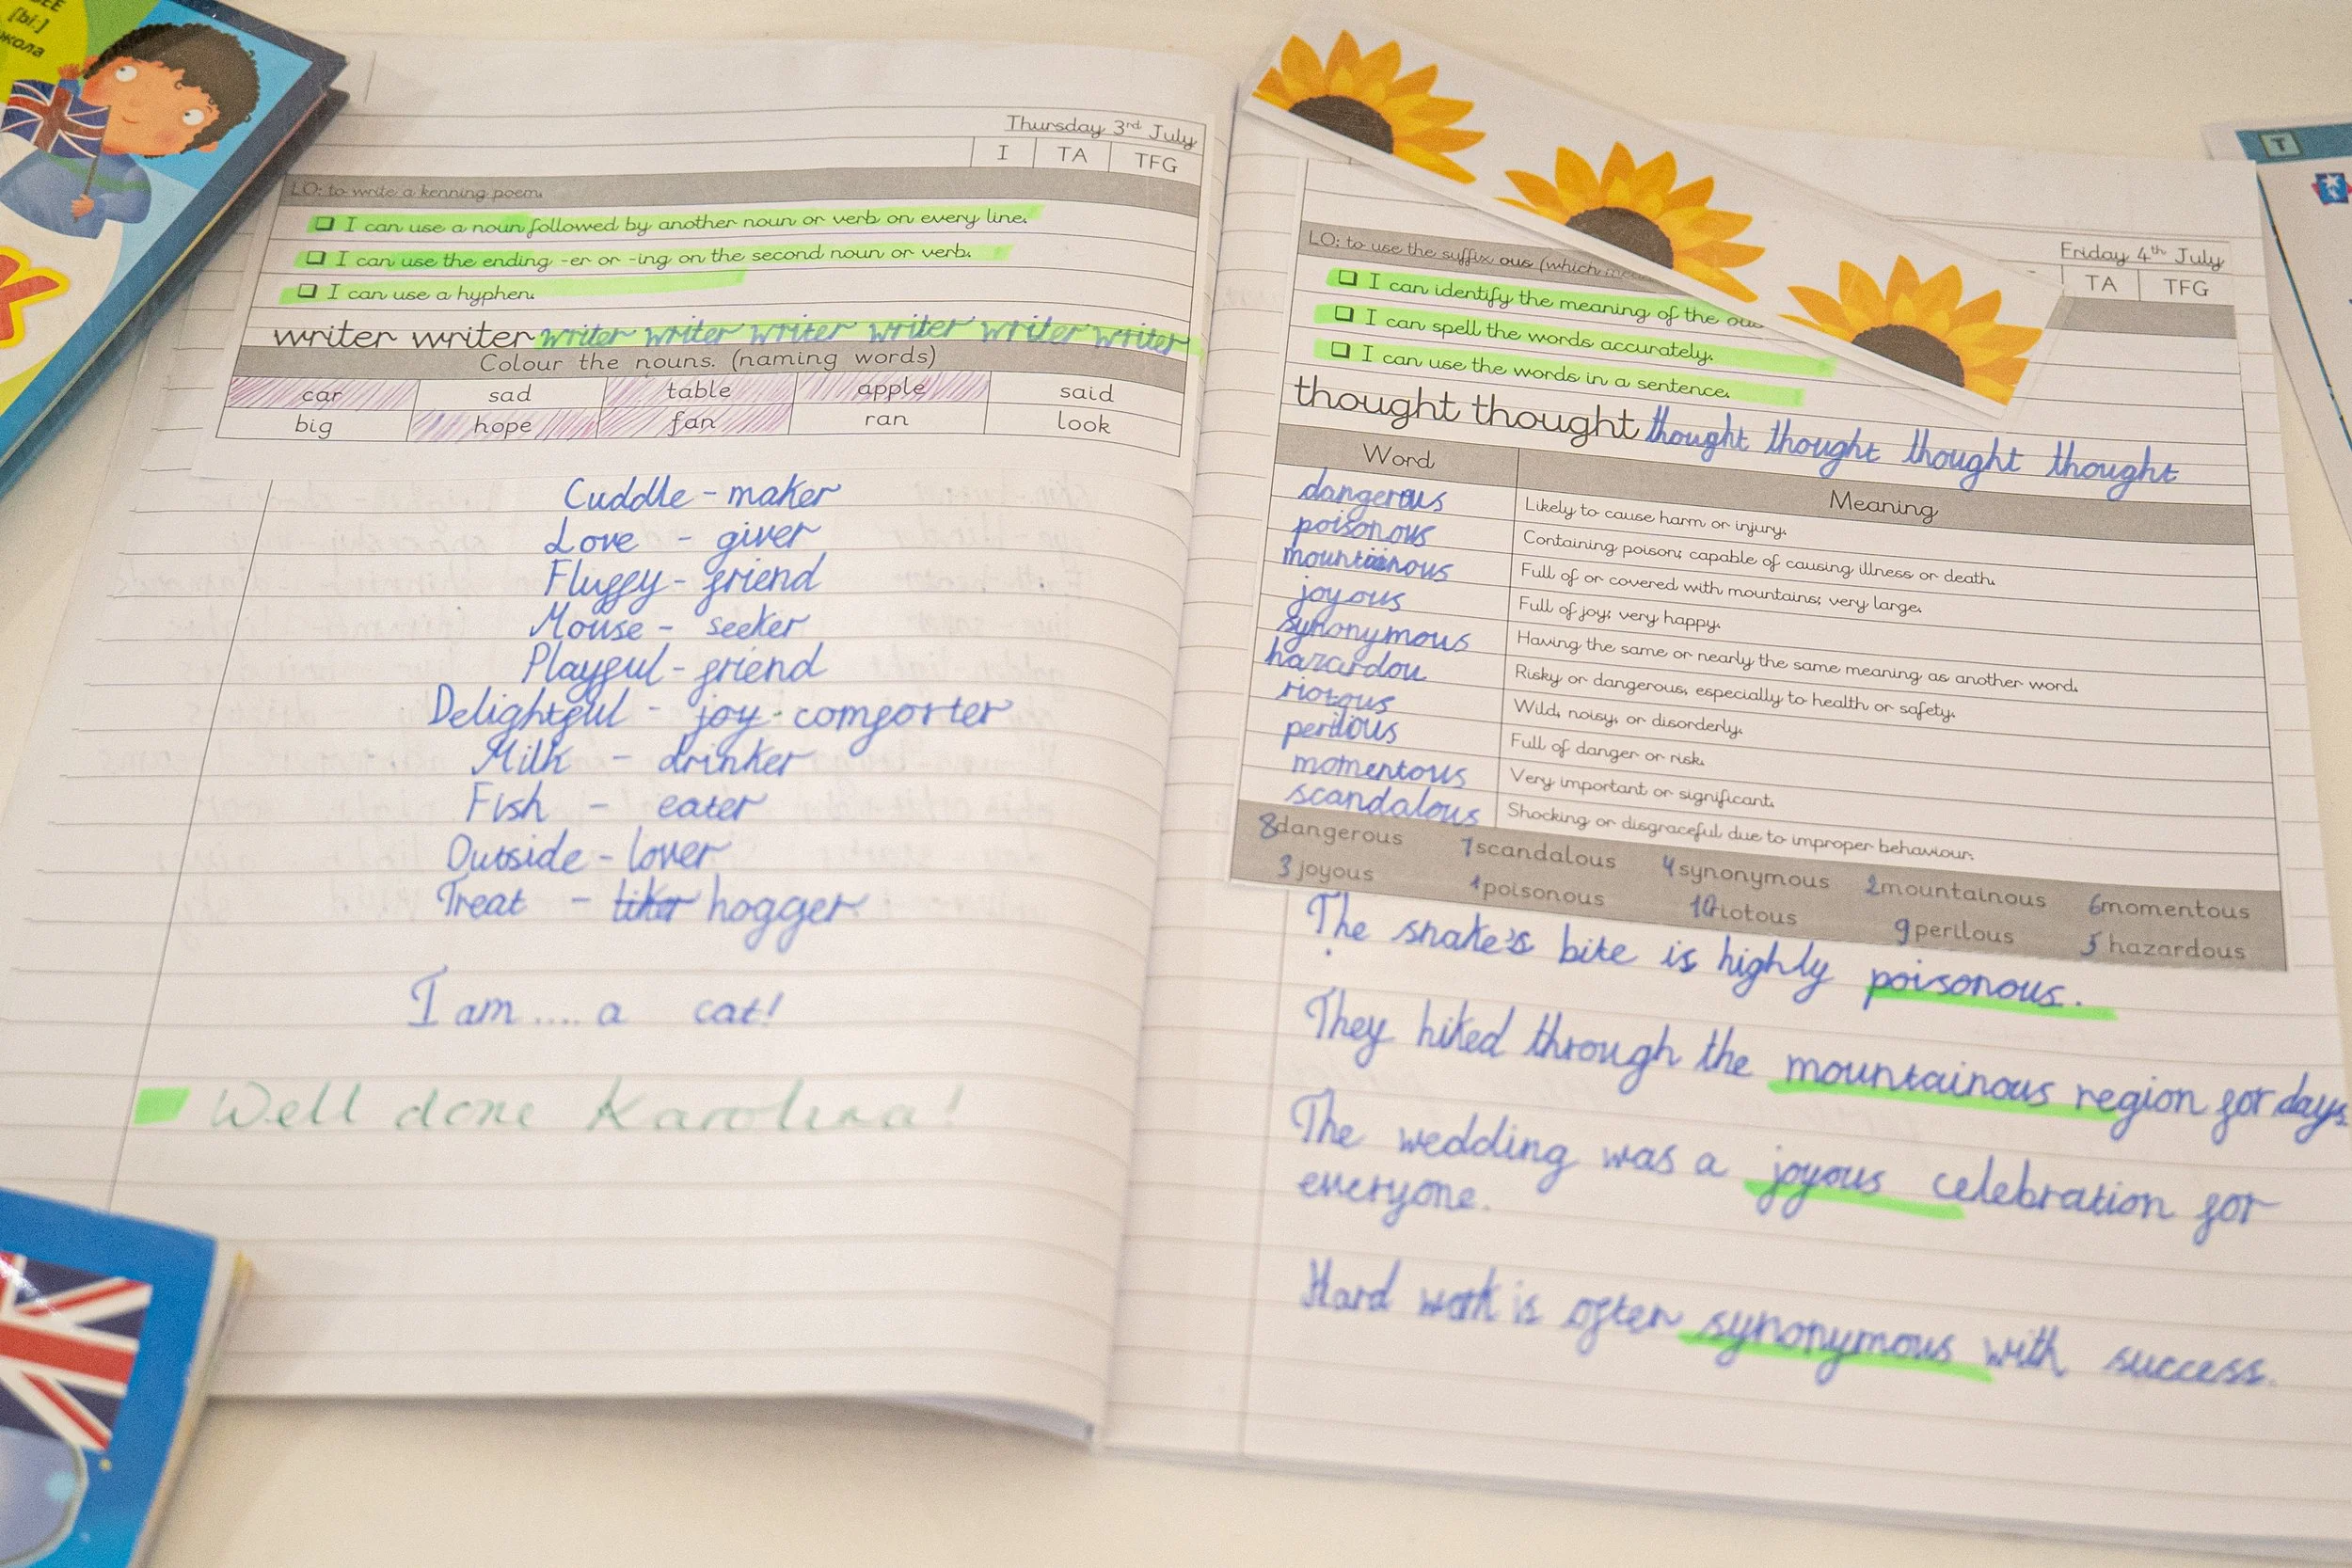 [bi:]
Thursday 3rd July
I TA TFG
LO: to write a kenning poem.
I can use a noun followed by another noun or verb on every line.
I can use the ending -er or -ing on the second noun or verb.
I can use a hyphen.
writer writer writer writer writer writer writer writer
Colour the nouns. (naming words)
car sad table apple said
big hope fan ran look
Cuddle - maker
Love - giver
Fluffy - friend
Mouse - seeker
Playful - friend
Delightful - joy - comforter
Milk - drinker
Fish - eater
Outside - lover
Treat - liker hogger
I am .... a cat!
Well done Karolina!
Friday 4th July
TA TFG
LO: to use the suffix ous (which
I can identify the meaning of the
I can spell the words accurately.
I can use the words in a sentence.
thought thought thought thought thought thought
Word Meaning
dangerous Likely to cause harm or injury.
poisonous Containing poison; capable of causing illness or death.
mountainous Full of or covered with mountains; very large.
joyous Full of joy; very happy.
synonymous Having the same or nearly the same meaning as another word.
hazardou Risky or dangerous, especially to health or safety.
riotous Wild, noisy, or disorderly.
perilous Full of danger or risk.
momentous Very important or significant.
scandalous Shocking or disgraceful due to improper behaviour.
8 dangerous 7 scandalous 4 synonymous 2 mountainous 6 momentous
3 joyous 1 poisonous 10 riotous 9 perilous 5 hazardous
The snake's bite is highly poisonous.
They hiked through the mountainous region for days.
The wedding was a joyous celebration for
everyone.
Hard work is often synonymous with success.
T